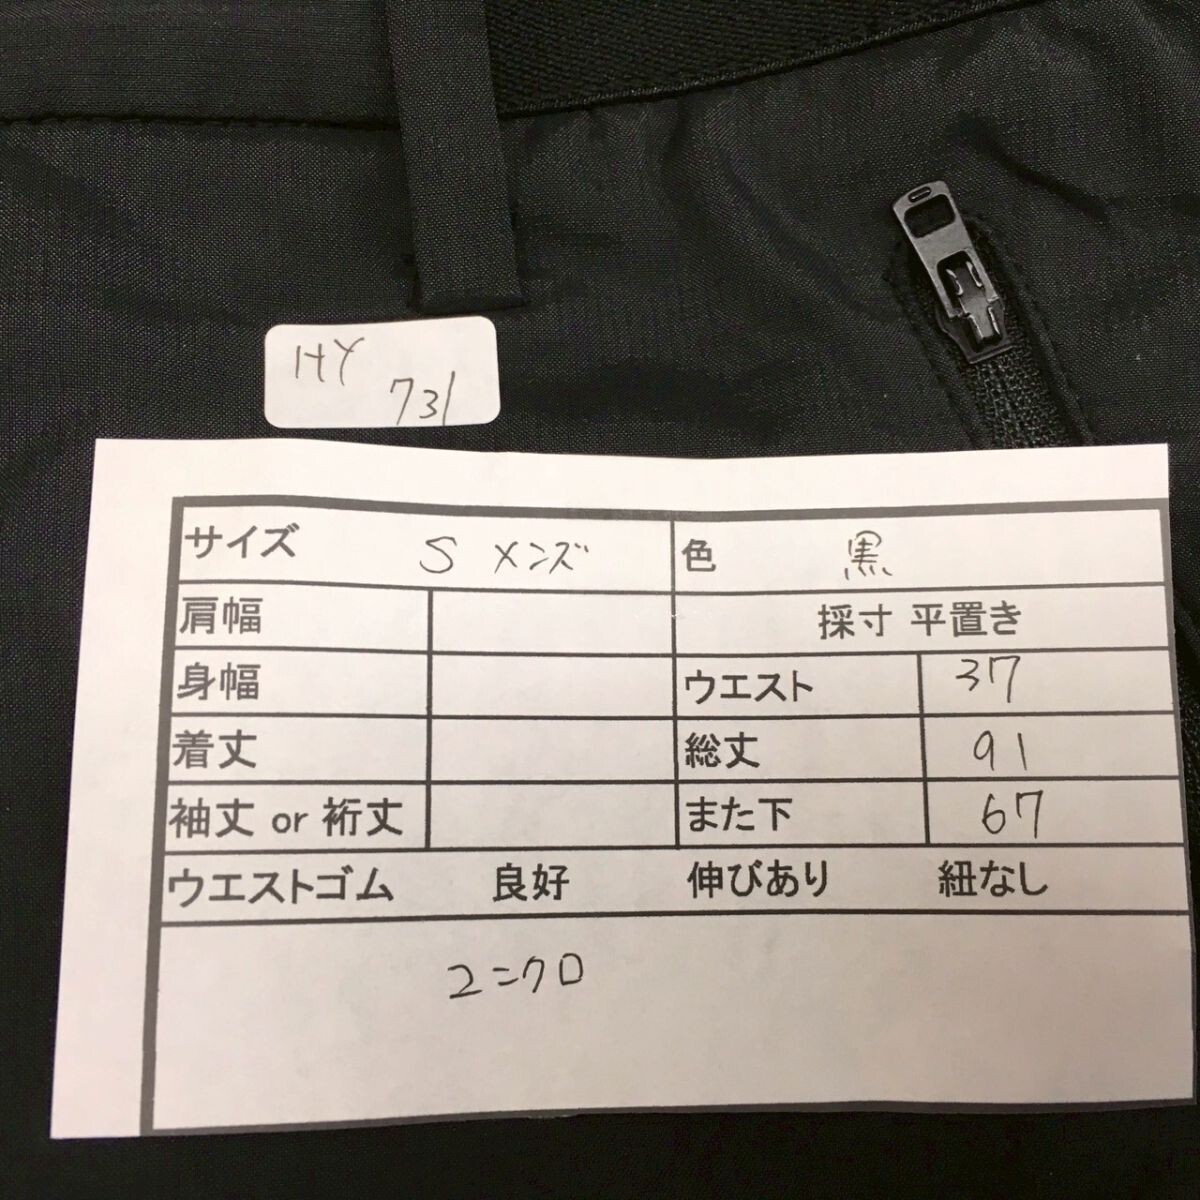 HY
731
サイズ S メンズ 色 黒
肩幅 採寸 平置き
身幅 ウエスト 37
着丈 総丈 91
袖丈 or 裄丈 また下 67
ウエストゴム 良好 伸びあり 紐なし
ユニクロ